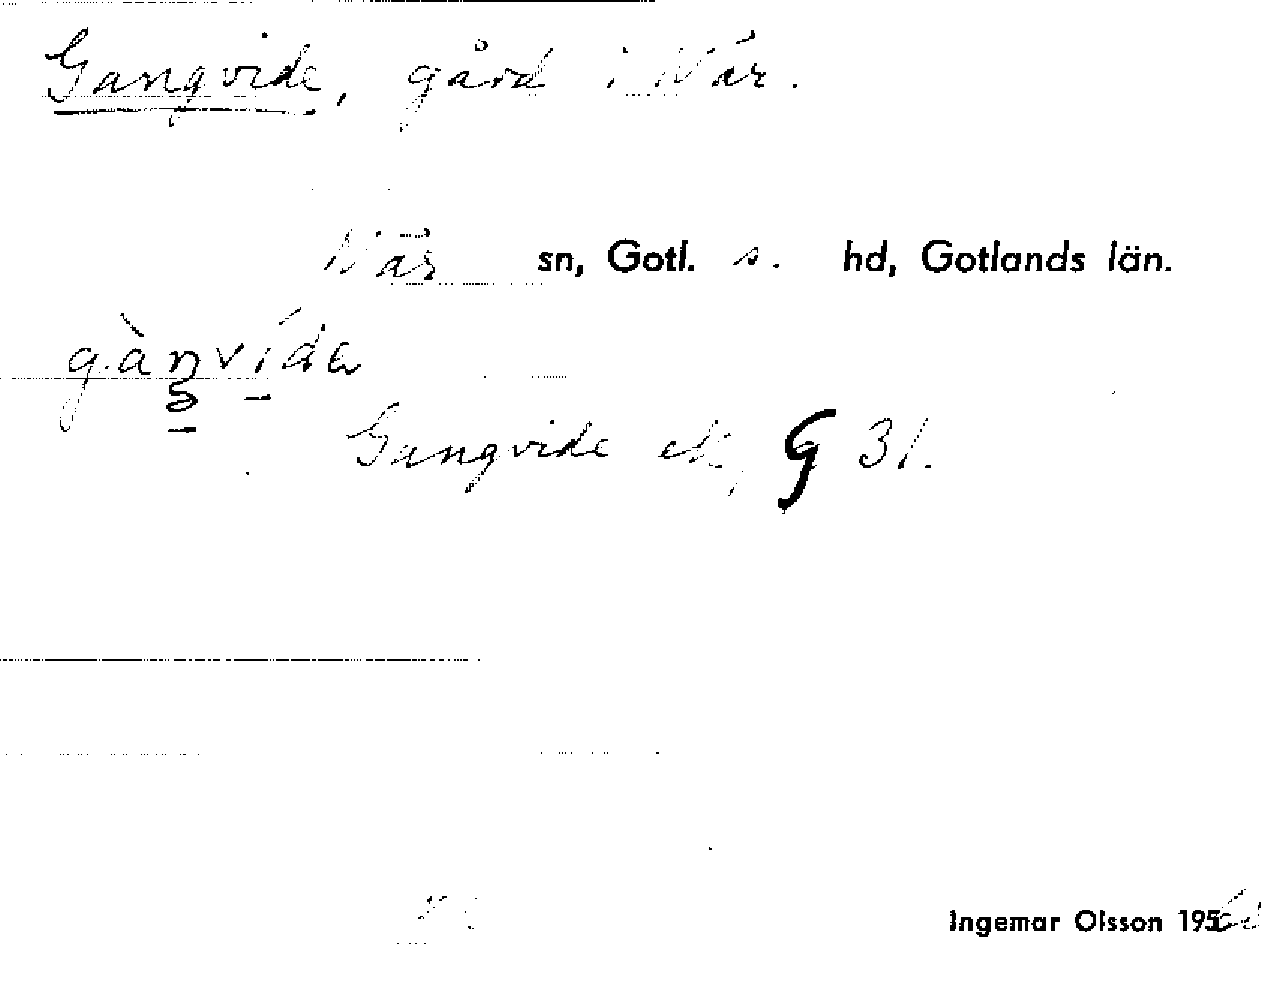 Gangvide, gård i När.
När sn, Gotl. s. hd, Gotlands län.
gàŋvídɐ
Gangvide ek, G 31.
Ingemar Olsson 195